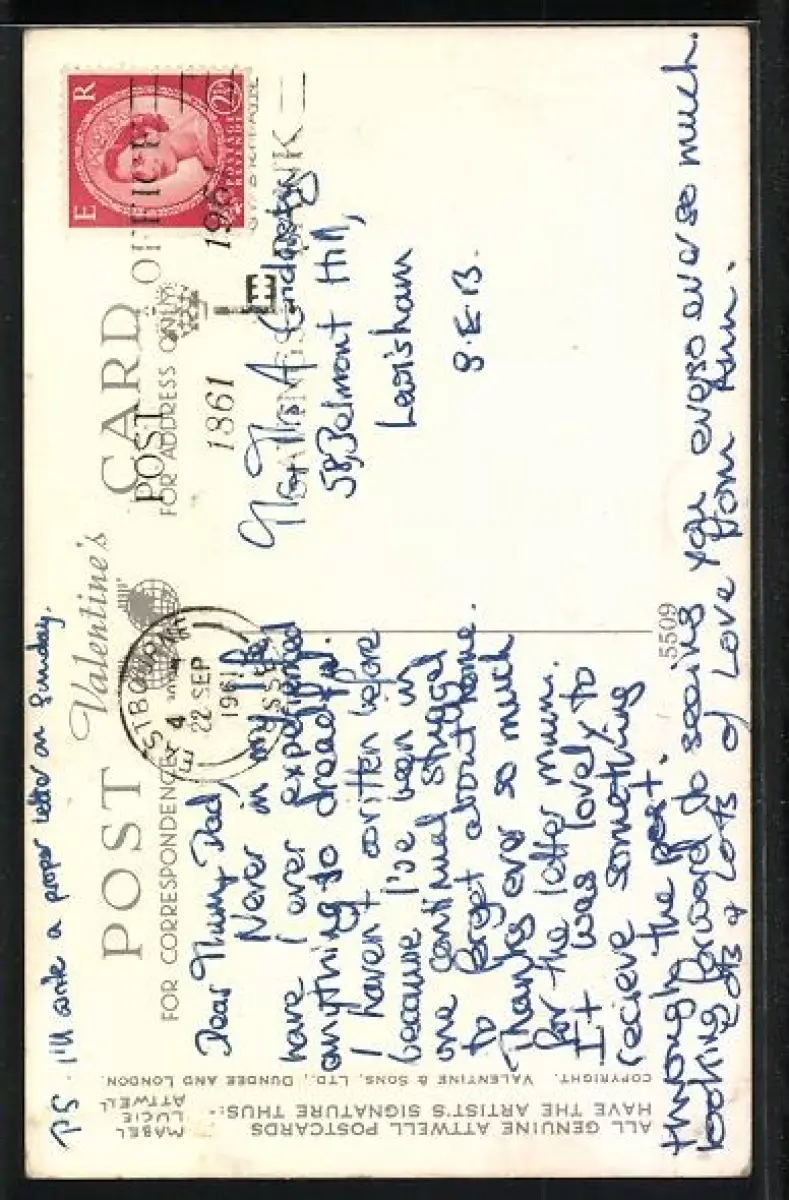 PS. I'll write a proper letter on Sunday.
Valentine's
POST CARD
FOR CORRESPONDENCE
FOR ADDRESS ONLY
E R
POSTAGE
REVENUE
2½
POST OFFICE
SAVINGS BANK
1861
EASTBOURNE
4
22 SEP
1961
SUSSEX
Dear Mummy Dad,
Never in my life
have I ever experienced
anything so dreadful.
I haven't written before
because I've been in
one continual struggel
to forget about home.
Thanks ever so much
for the letter mum.
It was lovely to
recieve something
through the post.
looking forward to seeing you everso ever so much.
Lots & Lots of Love from Ann.
58, Belmont Hill,
Lewisham
S.E.13.
5509
ALL GENUINE ATTWELL POSTCARDS
HAVE THE ARTIST'S SIGNATURE THUS:-
MABEL
LUCIE
ATTWELL
COPYRIGHT. VALENTINE & SONS, LTD., DUNDEE AND LONDON.